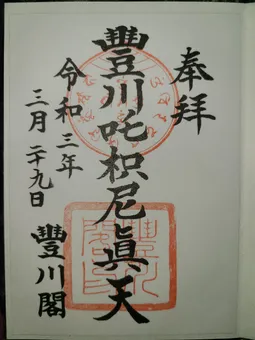 奉拝
豐川吒枳尼眞天
令和三年
三月二十九日
豐川閣